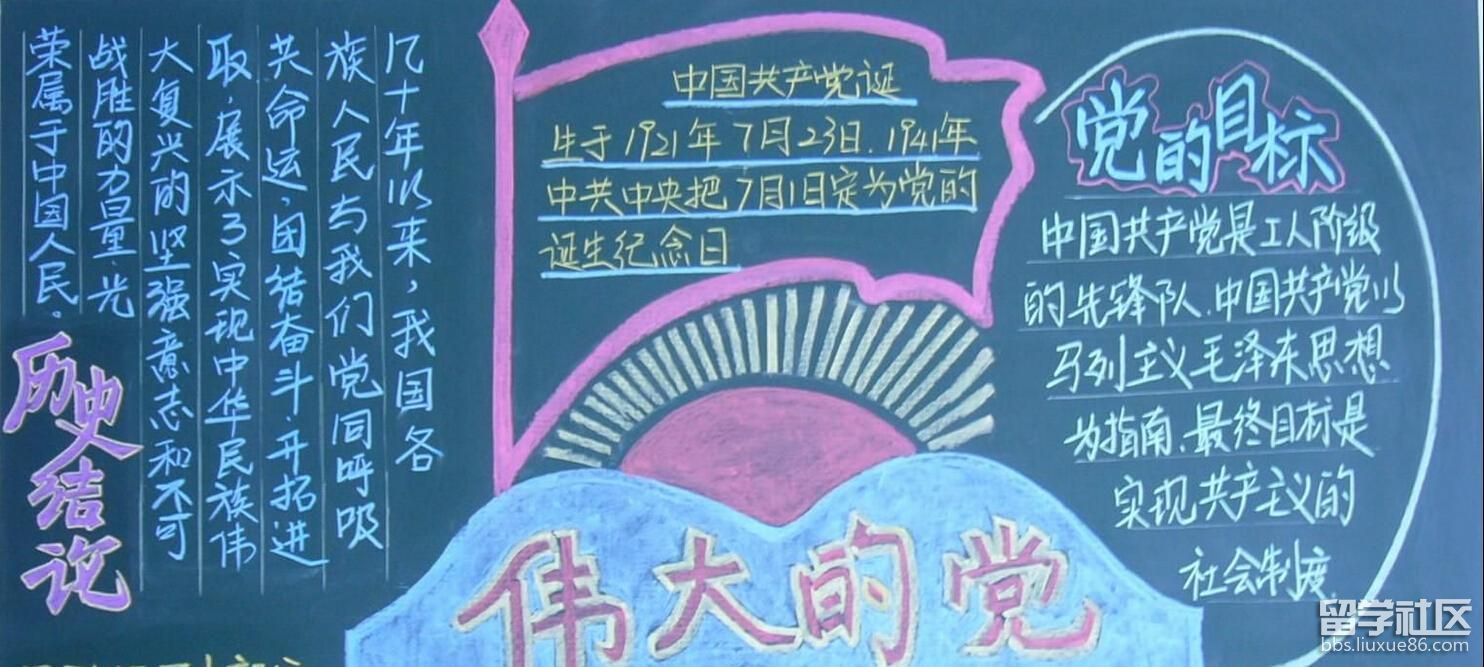 几十年以来，我国各
族人民与我们党同呼吸
共命运，团结奋斗、开拓进
取，展示了实现中华民族伟
大复兴的坚强意志和不可
战胜的力量，光
荣属于中国人民。
历史结论
中国共产党诞
生于1921年7月23日，1941年
中共中央把7月1日定为党的
诞生纪念日
伟大的党
党的目标
中国共产党是工人阶级
的先锋队，中国共产党以
马列主义毛泽东思想
为指南，最终目标是
实现共产主义的
社会制度。
留学社区
bbs.liuxue86.com